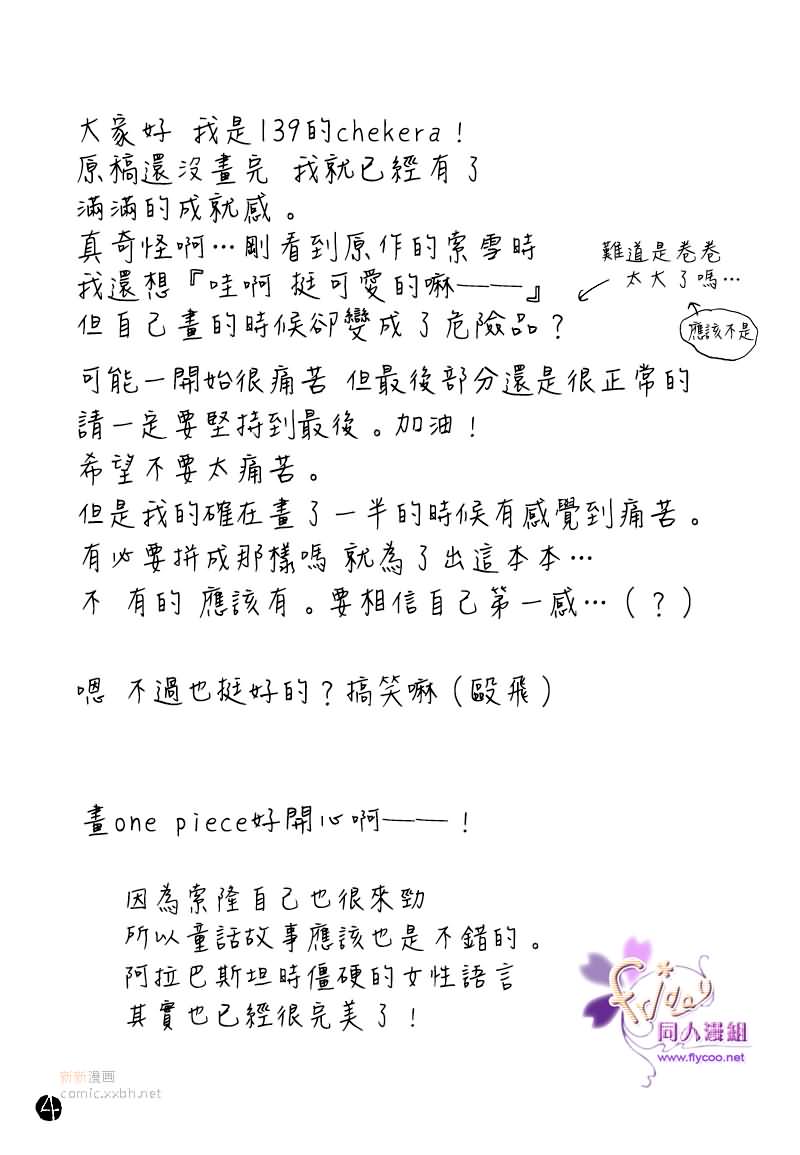 大家好 我是139的chekera！
原稿還沒畫完 我就已經有了
滿滿的成就感。
真奇怪啊…剛看到原作的索雪時
我還想『哇啊 挺可愛的嘛——』
但自己畫的時候卻變成了危險品？
難道是卷卷
太大了嗎…
應該不是
可能一開始很痛苦 但最後部分還是很正常的
請一定要堅持到最後。加油！
希望不要太痛苦。
但是我的確在畫了一半的時候有感覺到痛苦。
有必要拼成那樣嗎 就為了出這本本…
不 有的 應該有。要相信自己第一感…（？）
嗯 不過也挺好的？搞笑嘛（毆飛）
畫one piece好開心啊——！
因為索隆自己也很來勁
所以童話故事應該也是不錯的。
阿拉巴斯坦時僵硬的女性語言
其實也已經很完美了！
Friday
同人漫組
www.flycoo.net
新新漫画
comic.xxbh.net
4